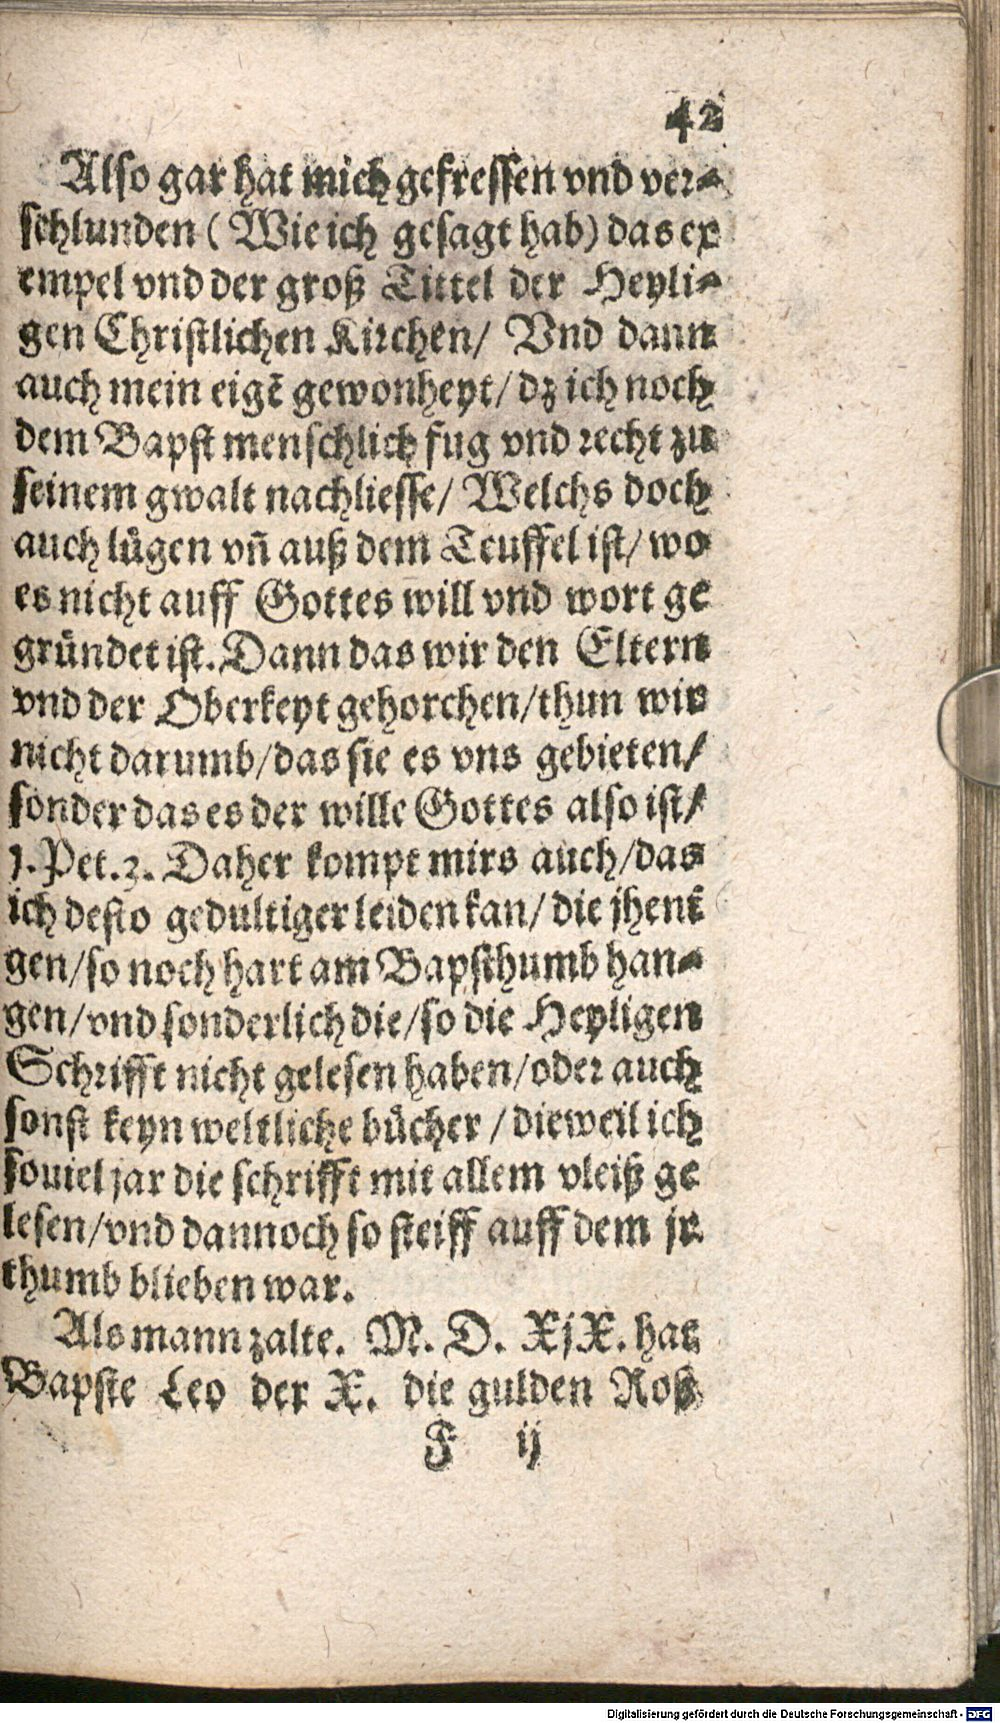 42
Also gar hat mich gefressen vnd ver⸗
schlunden ( Wie ich gesagt hab) das ex
empel vnd der groß Tittel der Heyli⸗
gen Christlichen Kirchen/ Vnd dann
auch mein eigē gewonheyt/ dz ich noch
dem Bapst menschlich fug vnd recht zu
seinem gwalt nachliesse/ Welchs doch
auch lügen vn̄ auß dem Teuffel ist/ wo
es nicht auff Gottes will vnd wort ge
gründet ist. Dann das wir den Eltern
vnd der Oberkeyt gehorchen/thun wir
nicht darumb/das sie es vns gebieten/
sonder das es der wille Gottes also ist/
1. Pet.3. Daher kompt mirs auch/das
ich desto gedultiger leiden kan/ die jheni
gen/so noch hart am Bapsthumb han⸗
gen/vnd sonderlich die/so die Heyligen
Schrifft nicht gelesen haben/oder auch
sonst keyn weltliche bücher / dieweil ich
souiel jar die schrifft mit allem vleiß ge
lesen/vnd dannoch so steiff auff dem jr
thumb blieben war.
Als mann zalte. M. D. XjX. hat
Bapste Leo der X. die gulden Roß
F ij
Digitalisierung gefördert durch die Deutsche Forschungsgemeinschaft - DFG